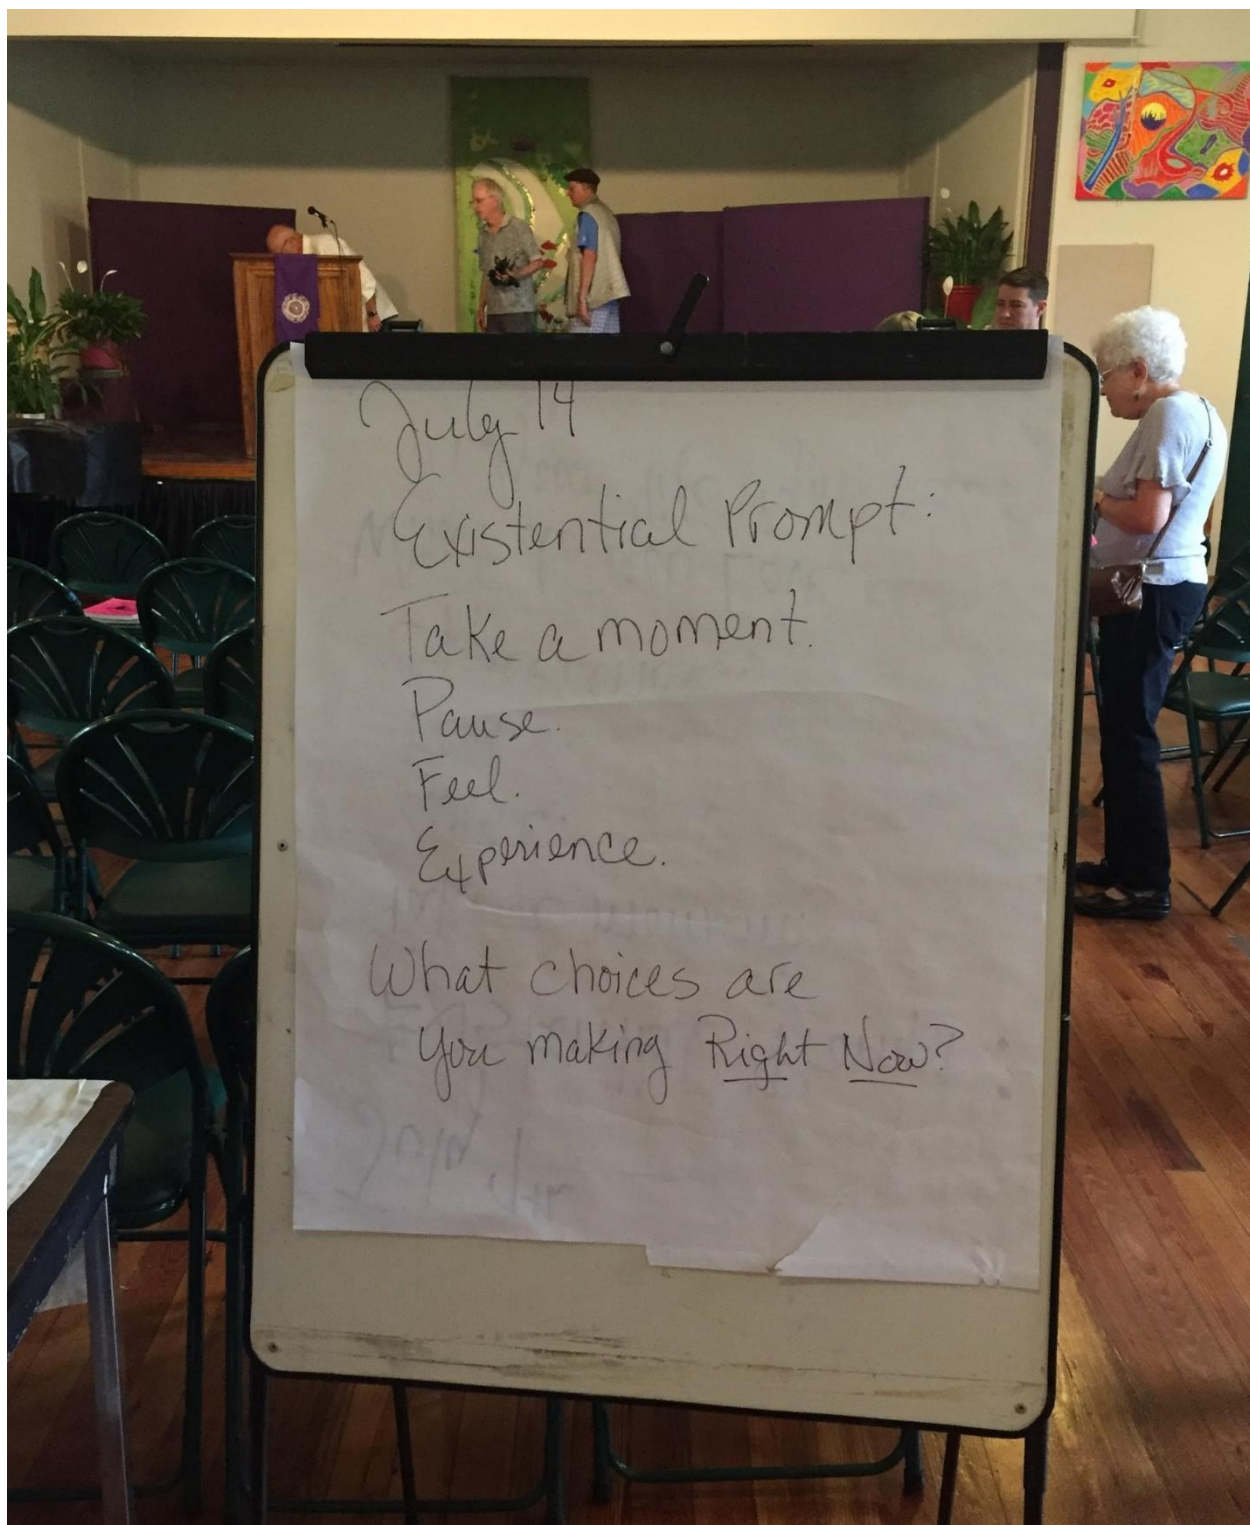 July 14
Existential Prompt:
Take a moment.
Pause.
Feel.
Experience.
What choices are
you making Right Now?